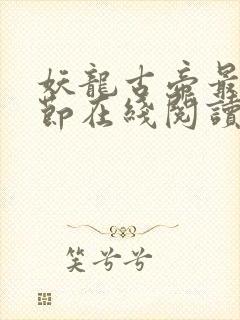 妖龍古帝最
節在綫閱讀
笑兮兮